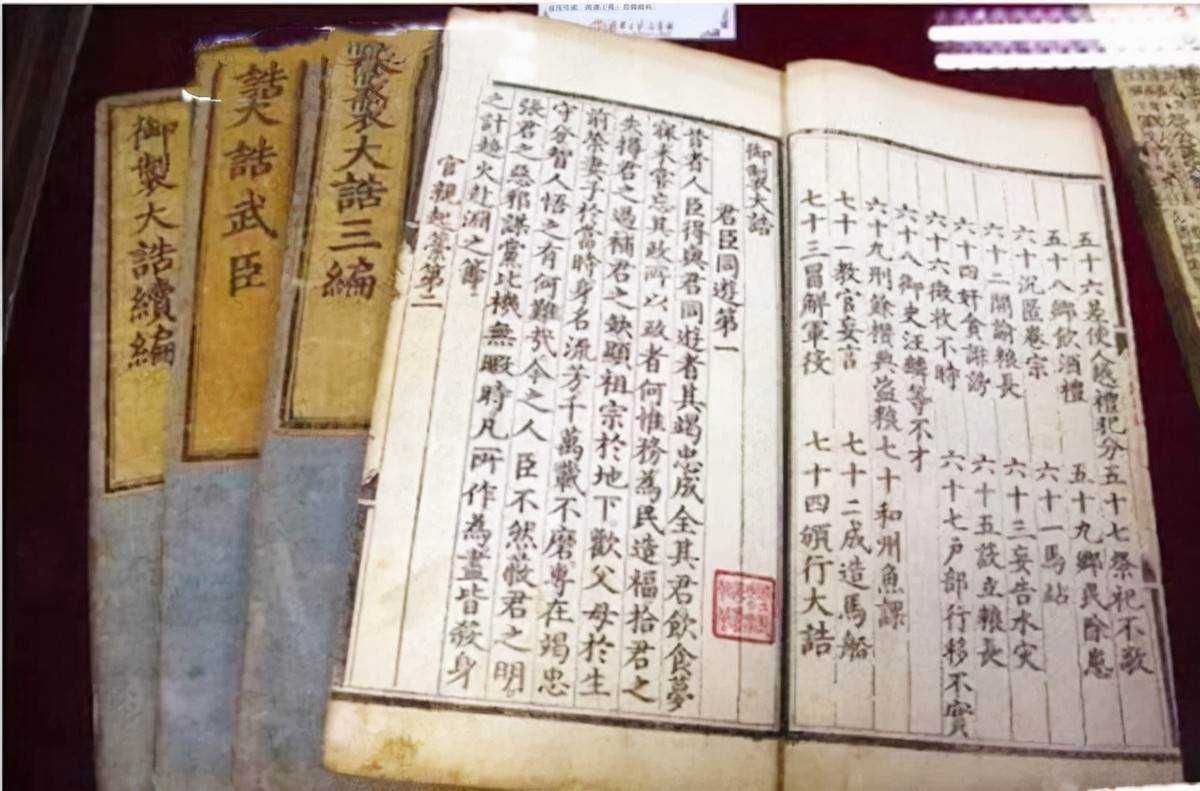 五十六差使人越禮犯分五十七祭祀不敬
五十八鄉飲酒禮 五十九鄉民除患
六十沉匿卷宗 六十一馬站
六十二開諭粮長 六十三妄告水灾
六十四奸貪誹謗 六十五設立粮長
六十六徵收不時 六十七戶部行移不實
六十八御史汪麟等不才
六十九刑餘攢典盜粮七十和州魚課
七十一教官妄言 七十二成造馬船
七十三冒解軍役 七十四頒行大誥
御製大誥
君臣同遊第一
昔者人臣得與君同遊者其竭忠成全其君飲食夢
寐未嘗忘其政所以政者何惟務為民造福拾君之
失撙君之過補君之缺顯祖宗於地下歡父母於生
前榮妻子於當時身名流芳千萬載不磨專在竭忠
守分智人悟之有何難哉今之人臣不然蔽君之明
張君之惡邪謀黨比機無暇時凡所作為盡皆殺身
之計趨火赴淵之筹
官親起藁第二
製大誥三編
誥大誥武臣
御製大誥續編